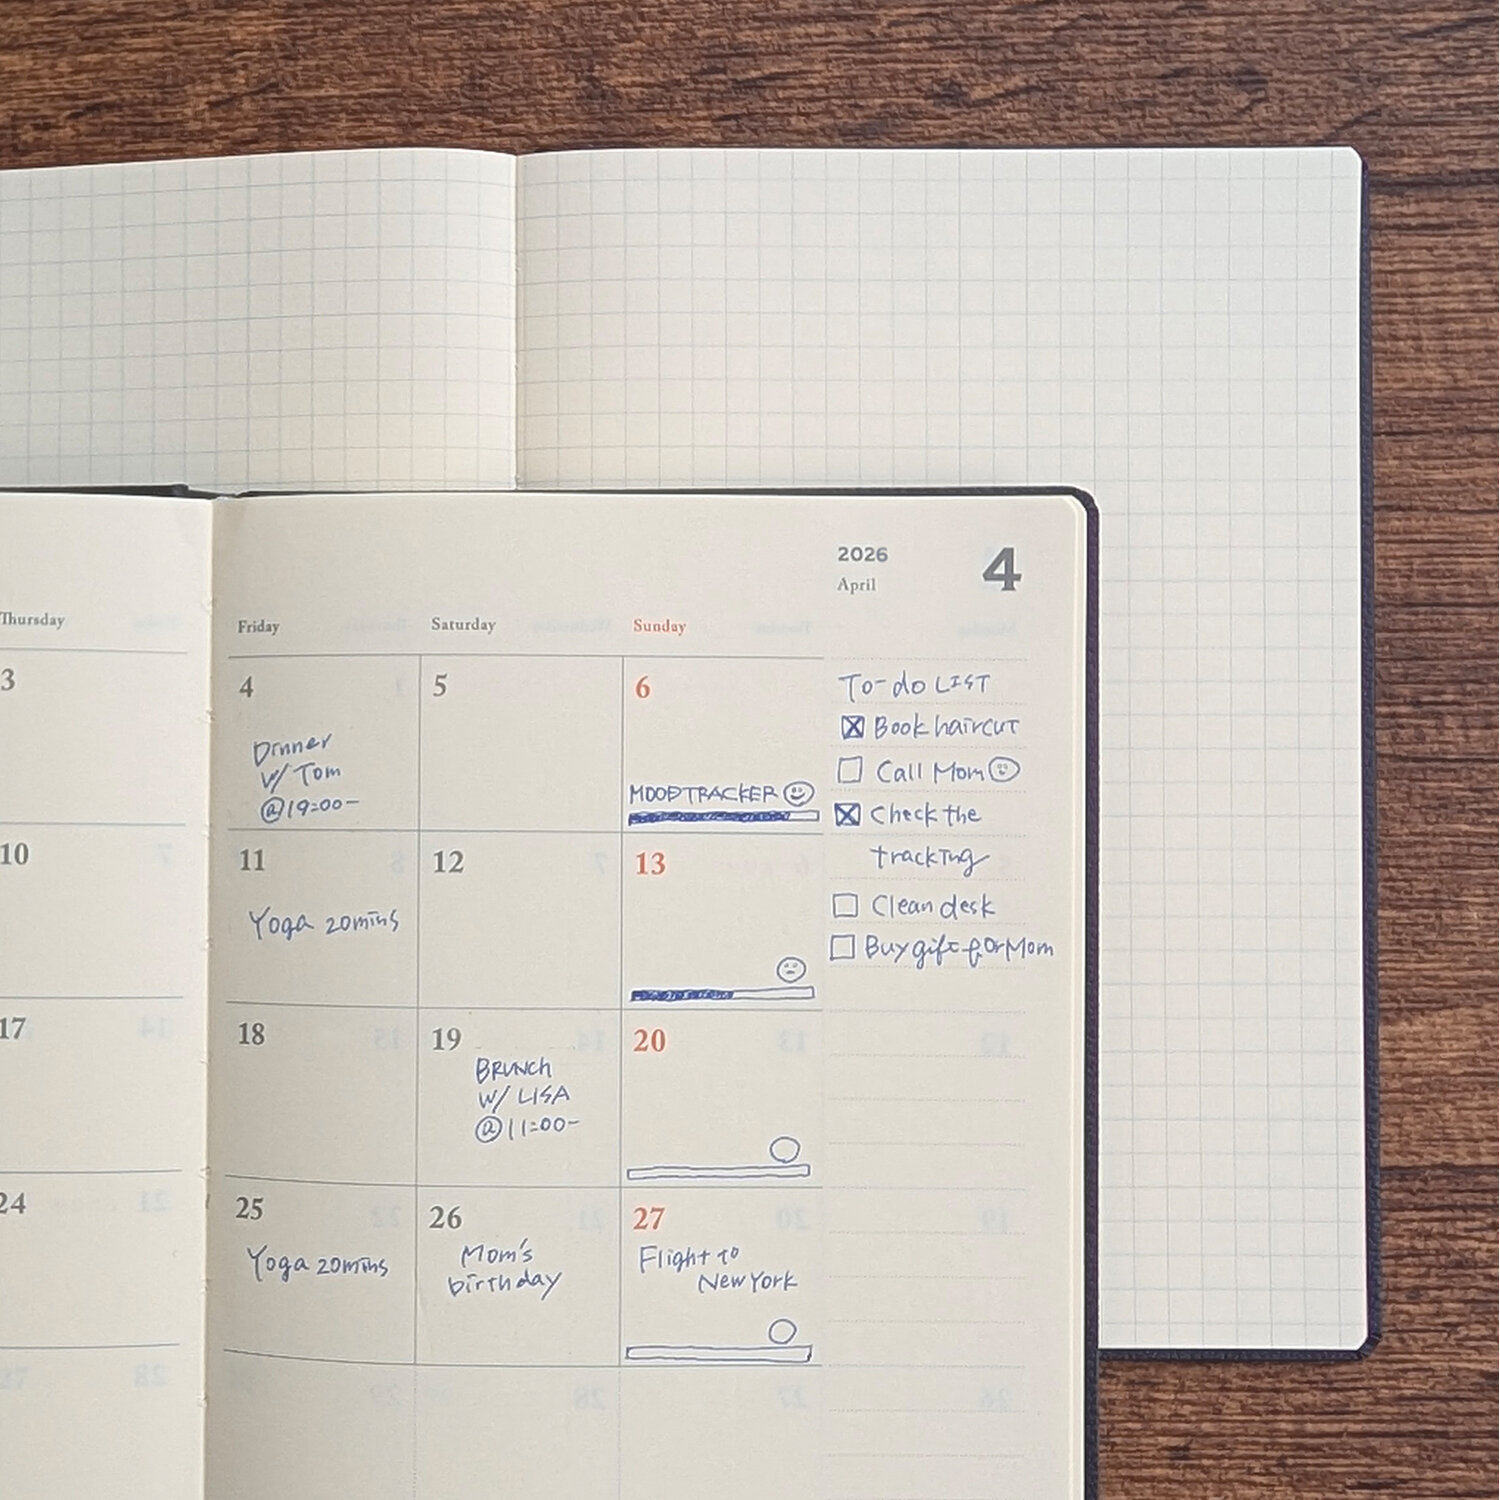 2026
April
4
Thursday
Friday
Saturday
Sunday
3
4
Dinner
w/ Tom
@19:00-
5
6
MOODTRACKER
10
11
Yoga 20mins
12
13
17
18
19
BRUNCH
W/ LISA
@11:00-
20
24
25
Yoga 20mins
26
Mom's
birthday
27
Flight to
New York
To-do LIST
Book haircut
Call Mom
Check the
tracking
Clean desk
Buy gift for Mom